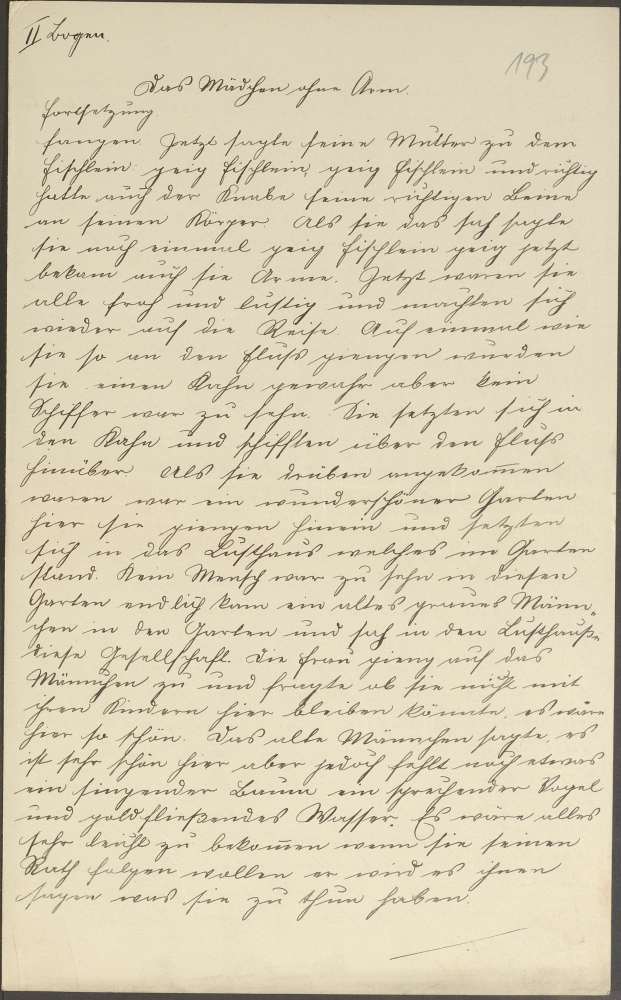 II Bogen.
193
Das Mädchen ohne Arm.
Fortsetzung
fangen. Jetzt sagte seine Mutter zu dem
Fischlein: zeig Fischlein, zeig Fischlein und richtig
hatte auch der Knabe seine richtigen Beine
an seinen Körper. Als sie das sah sagte
sie noch einmal zeig Fischlein zeig jetzt
bekam auch sie Arme. Jetzt waren sie
alle froh und lustig und machten sich
wieder auf die Reise. Auf einmal wie
sie so an den Fluß giengen wurden
sie einen Kahn gewahr aber kein
Schiffer war zu sehn. Sie setzten sich in
den Kahn und schifften über den Fluß
hinüber. Als sie drüben angekom̄en
waren war ein wunderschöner Garten
hier sie giengen hinein und setzten
sich in das Lusthaus welches im Garten
stand. Kein Mensch war zu sehn in diesen
Garten endlich kam ein altes graues Männ-
chen in den Garten und sah in den Lusthauße
diese Gesellschaft. Die Frau gieng auf das
Männchen zu und fragte ob sie nicht mit
ihren Kindern hier bleiben könnte, es wäre
hier so schön. Das alte Männchen sagte, es
ist sehr schön hier aber jedoch fehlt noch etwas
ein singender Baum ein sprechender Vogel
und goldfließendes Wasser. Es wäre alles
sehr leicht zu bekom̄en wenn sie seinen
Rath folgen wollen er wird es ihnen
sagen was sie zu thun haben.